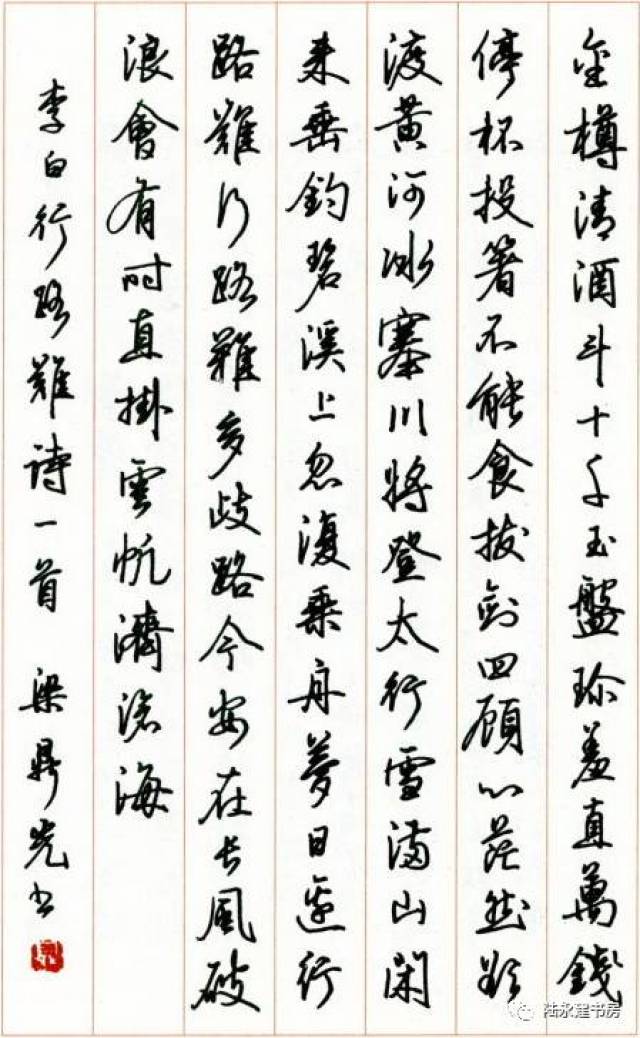 金樽清酒斗十千玉盤珍羞直萬錢
停杯投箸不能食拔劍四顧心茫然欲
渡黃河冰塞川將登太行雪滿山閑
來垂釣碧溪上忽復乘舟夢日邊行
路難行路難多歧路今安在長風破
浪會有時直掛雲帆濟滄海
李白行路難诗一首 梁鼎光书
陆永建书房